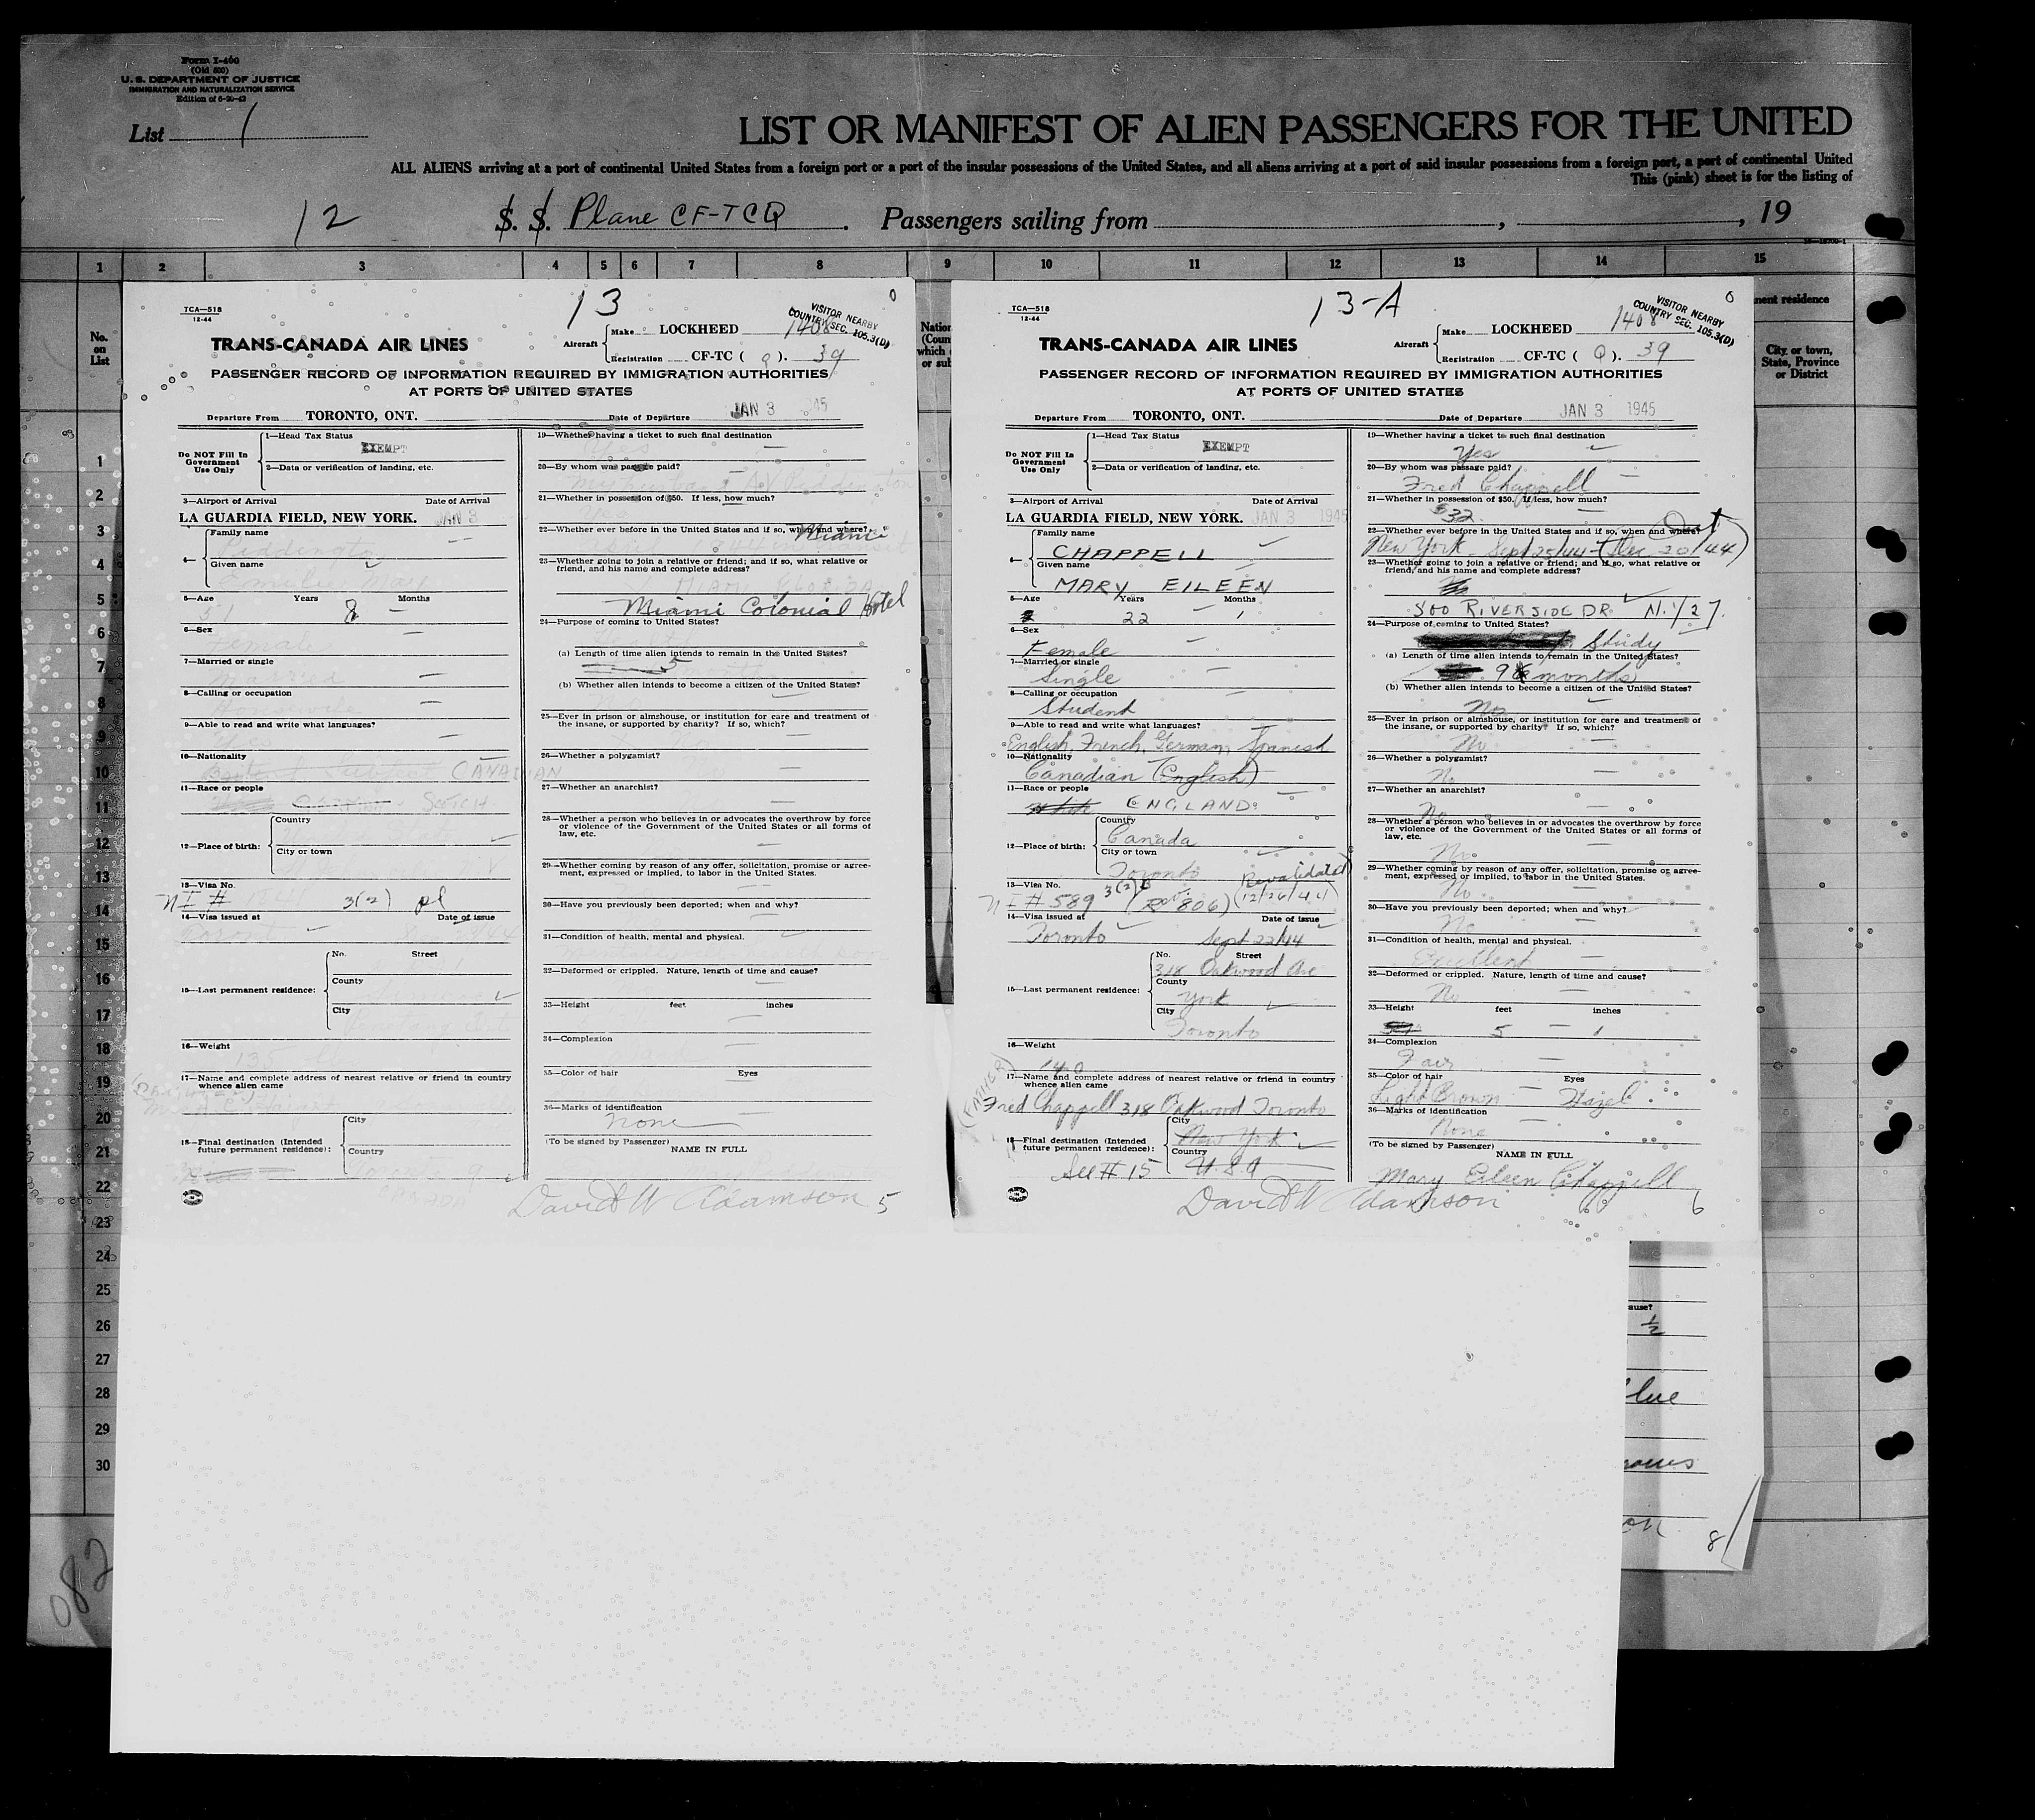 Form I-460
(Old 500)
U. S. DEPARTMENT OF JUSTICE
IMMIGRATION AND NATURALIZATION SERVICE
Edition of 6-20-42
List 1
LIST OR MANIFEST OF ALIEN PASSENGERS FOR THE UNITED
ALL ALIENS arriving at a port of continental United States from a foreign port or a port of the insular possessions of the United States, and all aliens arriving at a port of said insular possessions from a foreign port, a port of continental United
This (pink) sheet is for the listing of
12 S. S. Plane CF-TCQ. Passengers sailing from , , 19
1 2 3 4 5 6 7 8 9 10 11 12 13 14 15
No. on List
nent residence
City or town, State, Province or District
1
2
3
4
5
6
7
8
9
10
11
12
13
14
15
16
17
18
19
20
21
22
23
24
25
26
27
28
29
30
082
TCA—518
12-44
13
VISITOR NEARBY
COUNTRY SEC. 105.3(D)
1408
39
TRANS-CANADA AIR LINES
Aircraft Make LOCKHEED
Registration CF-TC ( Q ).
PASSENGER RECORD OF INFORMATION REQUIRED BY IMMIGRATION AUTHORITIES
AT PORTS OF UNITED STATES
Departure From TORONTO, ONT. Date of Departure JAN 3 45
Do NOT Fill In Government Use Only
1—Head Tax Status
EXEMPT
2—Data or verification of landing, etc.
3—Airport of Arrival Date of Arrival
LA GUARDIA FIELD, NEW YORK. JAN 3
4— Family name
Given name
5—Age Years Months
51 8
6—Sex
Female
7—Married or single
Married
8—Calling or occupation
Housewife
9—Able to read and write what languages?
10—Nationality
CANADIAN
11—Race or people
SCOTCH
12—Place of birth: Country
City or town
13—Visa No.
NI # 3(2) pl
14—Visa issued at Date of issue
Toronto
15—Last permanent residence: No. Street
County
City
16—Weight
135
17—Name and complete address of nearest relative or friend in country whence alien came
18—Final destination (Intended future permanent residence): City
Country
19—Whether having a ticket to such final destination
20—By whom was passage paid?
my husband
21—Whether in possession of $50. If less, how much?
Yes
22—Whether ever before in the United States and if so, when and where?
Miami
23—Whether going to join a relative or friend; and if so, what relative or friend, and his name and complete address?
Miami Colonial Hotel
24—Purpose of coming to United States?
(a) Length of time alien intends to remain in the United States?
5
(b) Whether alien intends to become a citizen of the United States?
25—Ever in prison or almshouse, or institution for care and treatment of the insane, or supported by charity? If so, which?
26—Whether a polygamist?
27—Whether an anarchist?
28—Whether a person who believes in or advocates the overthrow by force or violence of the Government of the United States or all forms of law, etc.
29—Whether coming by reason of any offer, solicitation, promise or agreement, expressed or implied, to labor in the United States.
30—Have you previously been deported; when and why?
31—Condition of health, mental and physical.
32—Deformed or crippled. Nature, length of time and cause?
33—Height feet inches
34—Complexion
35—Color of hair Eyes
36—Marks of identification
none
(To be signed by Passenger)
NAME IN FULL
David W Adamson 5
TCA—518
12-44
13-A
VISITOR NEARBY
COUNTRY SEC. 105.3(D)
1408
39
TRANS-CANADA AIR LINES
Aircraft Make LOCKHEED
Registration CF-TC ( Q ).
PASSENGER RECORD OF INFORMATION REQUIRED BY IMMIGRATION AUTHORITIES
AT PORTS OF UNITED STATES
Departure From TORONTO, ONT. Date of Departure JAN 3 1945
Do NOT Fill In Government Use Only
1—Head Tax Status
EXEMPT
2—Data or verification of landing, etc.
3—Airport of Arrival Date of Arrival
LA GUARDIA FIELD, NEW YORK. JAN 3 1945
4— Family name
CHAPPELL
Given name
MARY EILEEN
5—Age Years Months
22 1
6—Sex
Female
7—Married or single
Single
8—Calling or occupation
Student
9—Able to read and write what languages?
English, French, German, Spanish
10—Nationality
Canadian (English)
11—Race or people
White ENGLAND
12—Place of birth: Country
Canada
City or town
Toronto
13—Visa No. Revalidated
NI # 589 3(2) (Ret 806) (12/26/44)
14—Visa issued at Date of issue
Toronto Sept 22/44
15—Last permanent residence: No. Street
318 Oakwood Ave
County
York
City
Toronto
16—Weight
140
17—Name and complete address of nearest relative or friend in country whence alien came
(FATHER)
Fred Chappell 318 Oakwood Toronto
18—Final destination (Intended future permanent residence): City
New York
Country
U.S.A
See # 15
19—Whether having a ticket to such final destination
Yes
20—By whom was passage paid?
Fred Chappell
21—Whether in possession of $50. If less, how much?
$32
22—Whether ever before in the United States and if so, when and where?
New York - Sept 25/44 - (Dec 20/44) Out
23—Whether going to join a relative or friend; and if so, what relative or friend, and his name and complete address?
500 RIVERSIDE DR. N.Y 27.
24—Purpose of coming to United States?
Study
(a) Length of time alien intends to remain in the United States?
9 months
(b) Whether alien intends to become a citizen of the United States?
No
25—Ever in prison or almshouse, or institution for care and treatment of the insane, or supported by charity? If so, which?
No
26—Whether a polygamist?
No
27—Whether an anarchist?
No
28—Whether a person who believes in or advocates the overthrow by force or violence of the Government of the United States or all forms of law, etc.
No
29—Whether coming by reason of any offer, solicitation, promise or agreement, expressed or implied, to labor in the United States.
No
30—Have you previously been deported; when and why?
No
31—Condition of health, mental and physical.
Excellent
32—Deformed or crippled. Nature, length of time and cause?
No
33—Height feet inches
5 1
34—Complexion
Fair
35—Color of hair Eyes
Light Brown Hazel
36—Marks of identification
None
(To be signed by Passenger)
NAME IN FULL
Mary Eileen Chappell
David W Adamson 6
ause?
½
lue
8